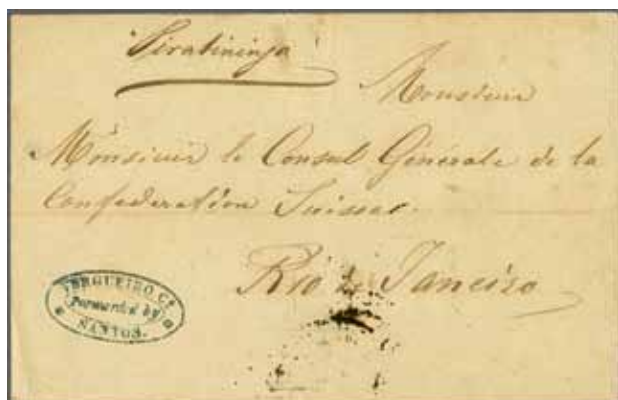 Pirabininga
Monsieur
Monsieur le Consul Générale de la
Confederation Suisse.
Rio de Janeiro
VERGUEIRO Cª
Forwarded by
SANTOS.